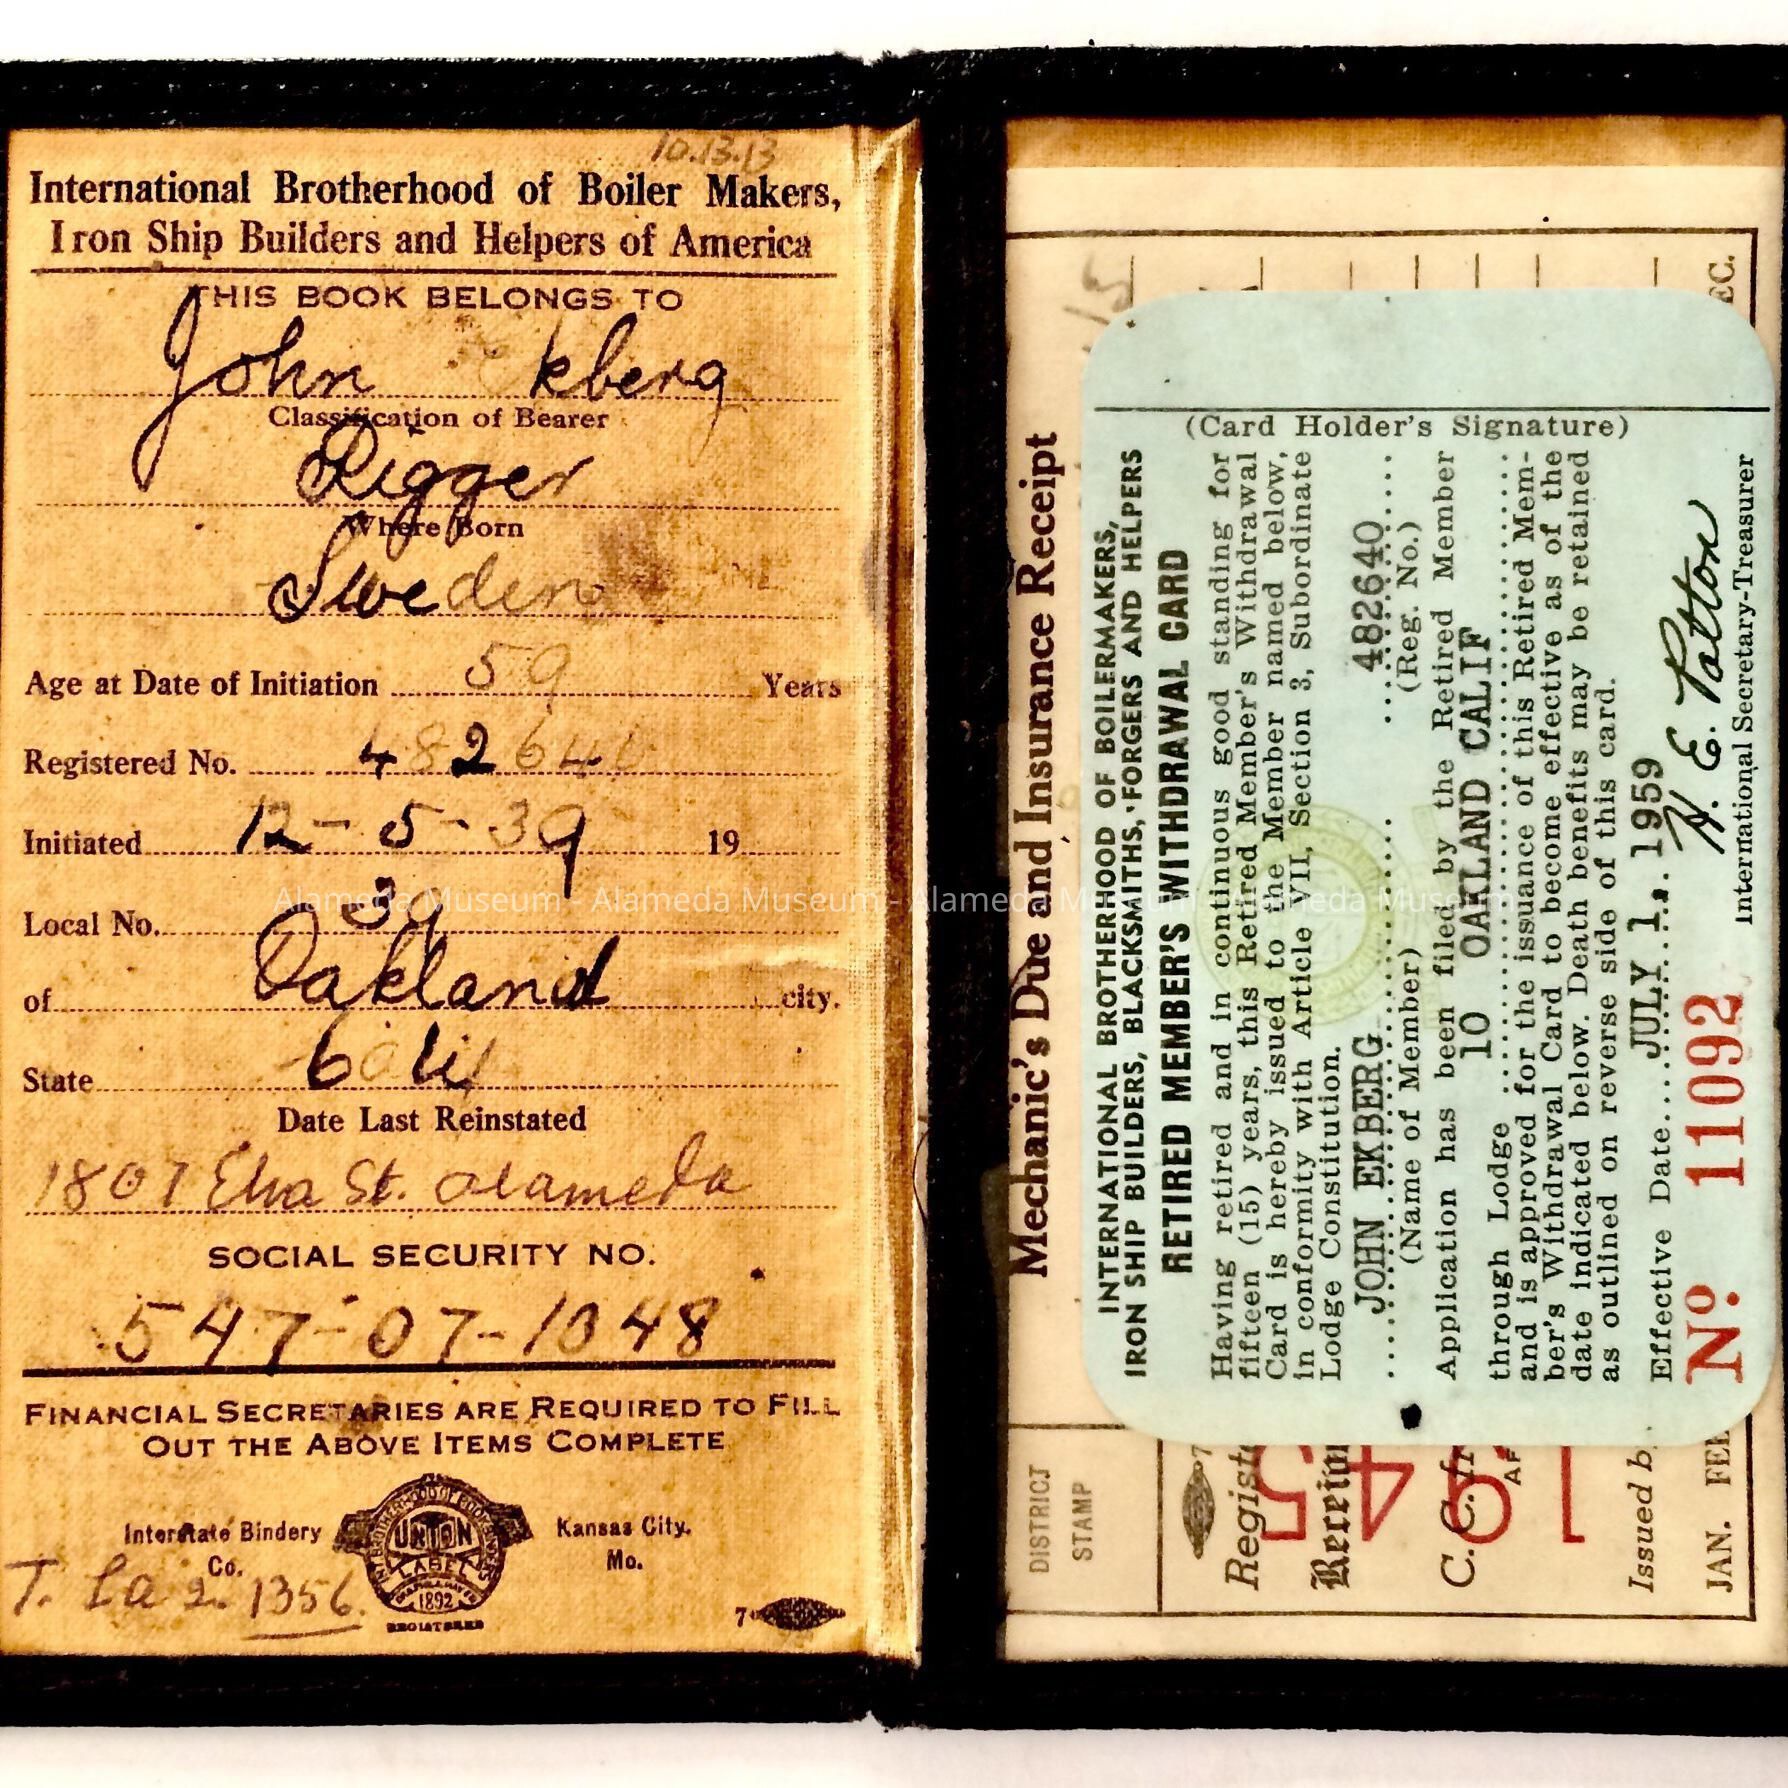 10.13.13
International Brotherhood of Boiler Makers,
Iron Ship Builders and Helpers of America
THIS BOOK BELONGS TO
John Ekberg
Classification of Bearer
Rigger
Where Born
Sweden
Age at Date of Initiation 59 Years
Registered No. 482640
Initiated 12-5-39 19
Local No. 39
of Oakland city.
State Calif
Date Last Reinstated
1807 Elna St. Alameda
SOCIAL SECURITY NO.
547-07-1048
FINANCIAL SECRETARIES ARE REQUIRED TO FILL
OUT THE ABOVE ITEMS COMPLETE
Interstate Bindery Co.
UNION
LABEL
1892
REGISTERED
Kansas City. Mo.
7
1356
Alameda Museum - Alameda Museum - Alameda Museum - Alameda Museum
Mechanic's Due and Insurance Receipt
DISTRICT
STAMP
INTERNATIONAL BROTHERHOOD OF BOILERMAKERS,
IRON SHIP BUILDERS, BLACKSMITHS, FORGERS AND HELPERS
RETIRED MEMBER'S WITHDRAWAL CARD
Having retired and in continuous good standing for
fifteen (15) years, this Retired Member's Withdrawal
Card is hereby issued to the Member named below,
in conformity with Article VII, Section 3, Subordinate
Lodge Constitution.
JOHN EKBERG 482640
(Name of Member) (Reg. No.)
Application has been filed by the Retired Member
through Lodge 10 OAKLAND CALIF
and is approved for the issuance of this Retired Mem-
ber's Withdrawal Card to become effective as of the
date indicated below. Death benefits may be retained
as outlined on reverse side of this card.
Effective Date JULY 1, 1959
H. E. Patton
No. 11092 International Secretary-Treasurer
(Card Holder's Signature)
7
C. C.
Issued b
JAN. FEB
EC.